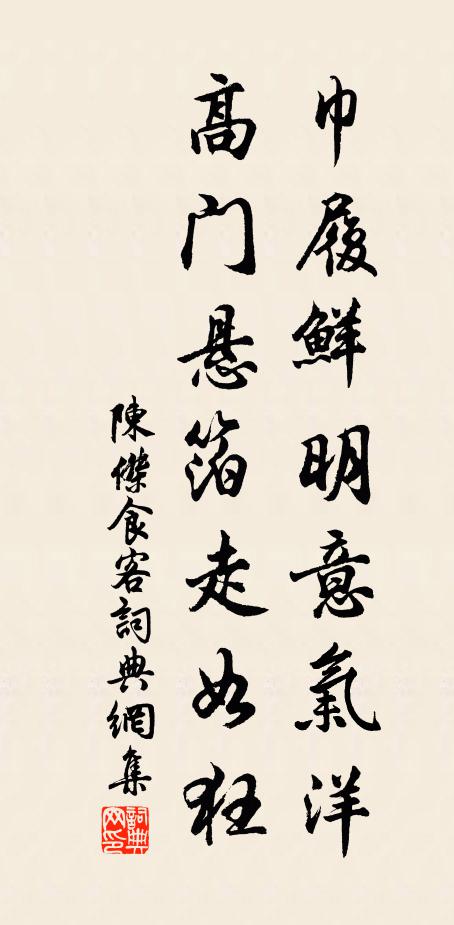 巾履鮮明意氣洋
高门悬箔走如狂
陳傑食客詞典網集
詞典网印